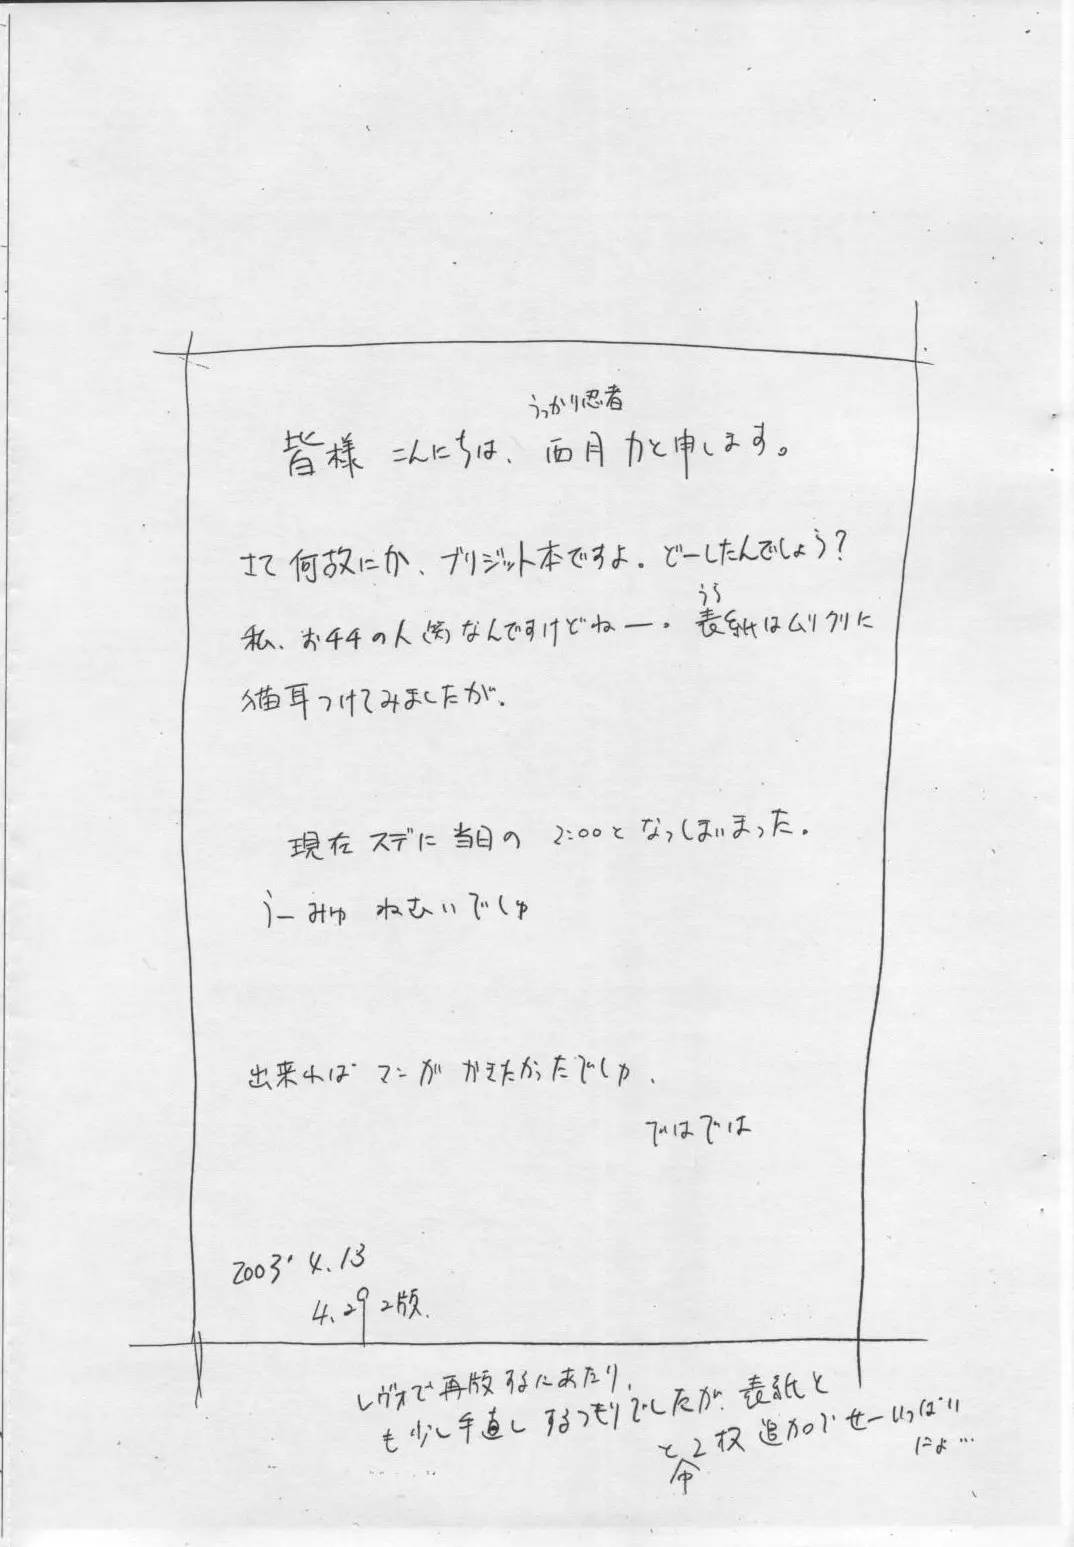 うっかり忍者
皆様 こんにちは、西月力と申します。
さて何故にか、ブリジット本ですよ。どーしたんでしょう?
うら
私、お千千の人(笑)なんですけどねー。表紙はムリクリに
猫耳つけてみましたが、
現在 スデに当日の 2:00となってしまいまった。
うーみゅ ねむいでしゅ
出来れば マンガ かきたかったでしゅ、
ではでは
2003' 4.13
4.29 2版.
レヴォで再版するにあたり、
も少し手直しするつもりでしたが、表紙と
と2枚追加で せーいっぱい
にょ…
中